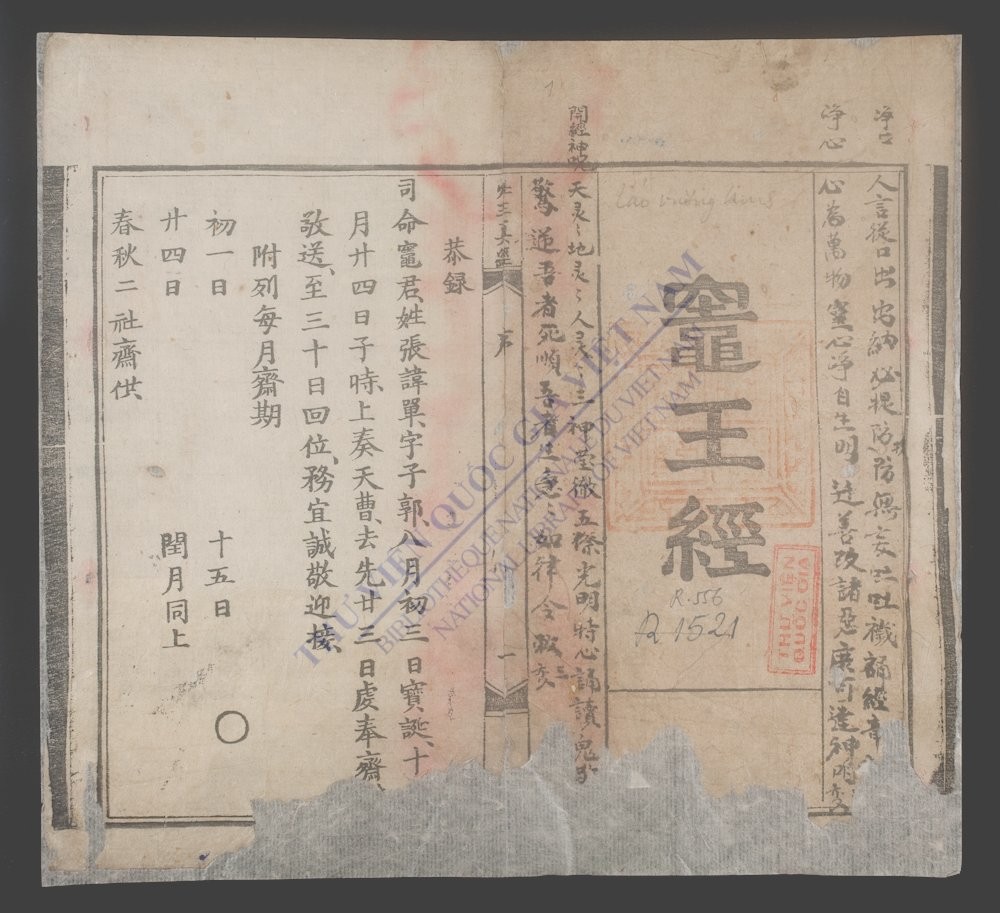 淨口
人言從口出出納必提防防無妄吐吐穢誦經章
淨心
心為萬物靈心淨自生明遷善改諸惡庶可達神明
Táo vương kinh
竈王經
R.556
R 1521
THƯ VIỆN
QUỐC GIA
開經神咒
天灵〻地灵〻人灵〻三神瑩徹五際光明特心誦讀鬼
驚逆吾者死順吾者生急〻如律令
序
一
恭錄
司命竈君姓張諱單字子郭八月初三日寶誕十
月廿四日子時上奏天曹去先廿三日虔奉齋
敬送至三十日回位務宜誠敬迎接
附列每月齋期
初一日 十五日
廿四日 閏月同上
春秋二社齋供
THƯ VIỆN QUỐC GIA VIỆT NAM
BIBLIOTHÈQUE NATIONALE DU VIETNAM
NATIONAL LIBRARY OF VIETNAM